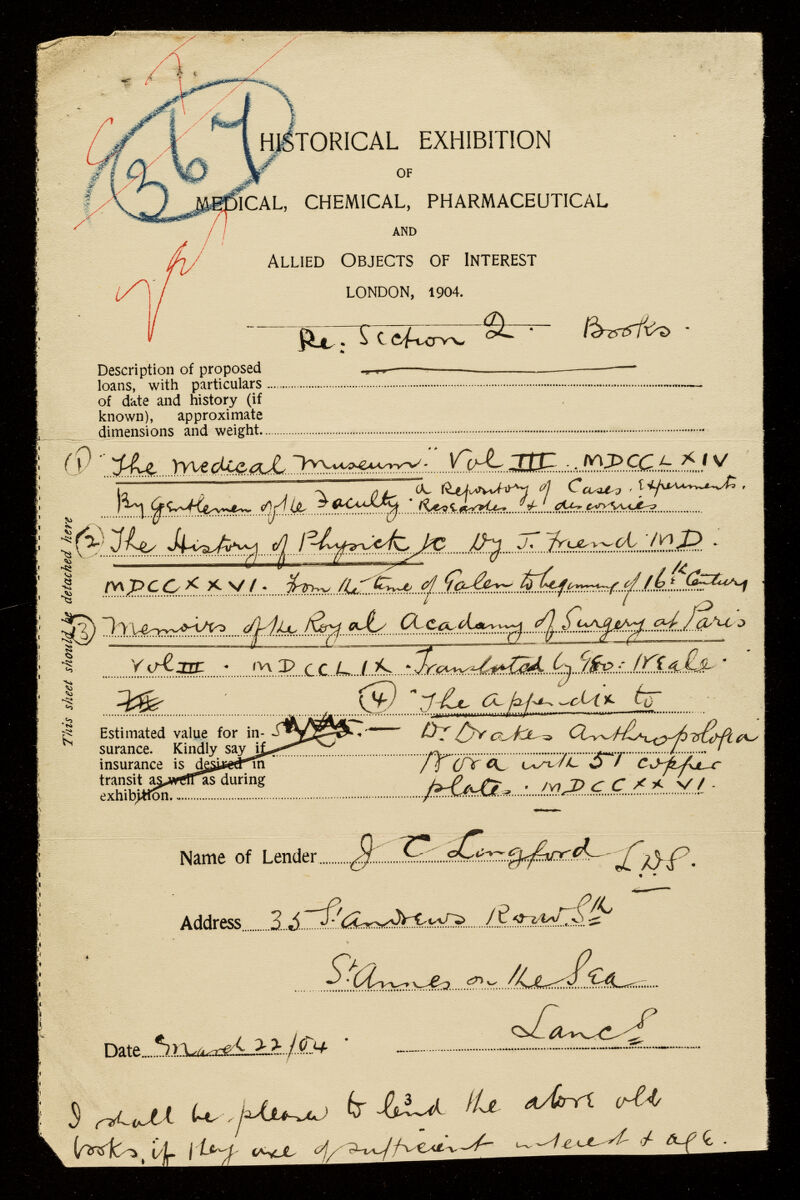 367
HISTORICAL EXHIBITION
OF
MEDICAL, CHEMICAL, PHARMACEUTICAL
AND
ALLIED OBJECTS OF INTEREST
LONDON, 1904.
Re: Section 2. Books.
Description of proposed
loans, with particulars
of date and history (if
known), approximate
dimensions and weight.
(1) "The Medical Museum." Vol III. MDCCLXIV
By Gentlemen of the Faculty. a Repository of Cases. Experiments.
Researches & discoveries
(2) The History of Physick &c by J. Friend MD.
MDCCXXVI. From the time of Galen to beginning of 16th Century
(3) Memoirs of the Royal Academy of Surgery at Paris
Vol III. MDCCLIX. Translated by Geo: Neale.
(4) "The Appendix to
Dr. Drakes Anthropologia
Nova with 51 copper
plates. MDCCXXVI.
This sheet should be detached here
Estimated value for in-
surance. Kindly say if
insurance is desired in
transit as well as during
exhibition.
Name of Lender J C Lingford L.D.S.
Address 35 St Andrews Road Sth
St Annes on the Sea
Lancs
Date March 22/04.
I shall be pleased to lend the above old
books, if they are of sufficient interest & age.
3